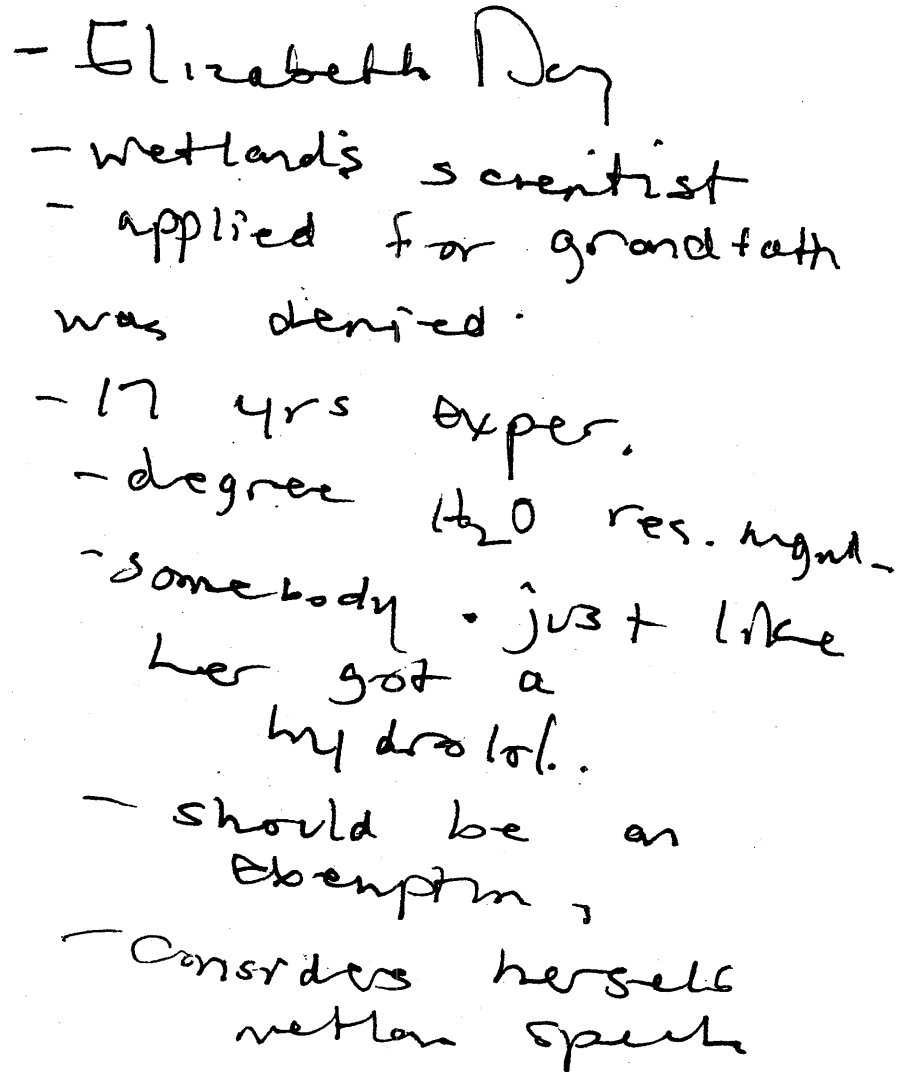 - Elizabeth Day
- wetlands scientist
- applied for grandfath
was denied.
- 17 yrs exper.
- degree H₂O res. mgmt.
- somebody just like
her got a
hydrolo
- should be an
exemption,
- Considers herself
wetlan